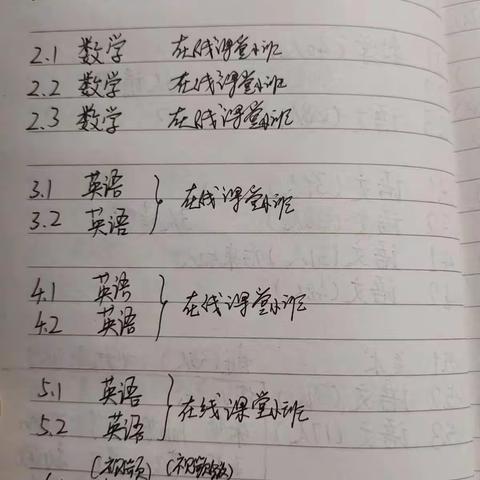 2.1 数学 在线课堂小班
2.2 数学 在线课堂小班
2.3 数学 在线课堂小班
3.1 英语
3.2 英语 } 在线课堂小班
4.1 英语
4.2 英语 } 在线课堂小班
5.1 英语
5.2 英语 } 在线课堂小班
(视频) (视频